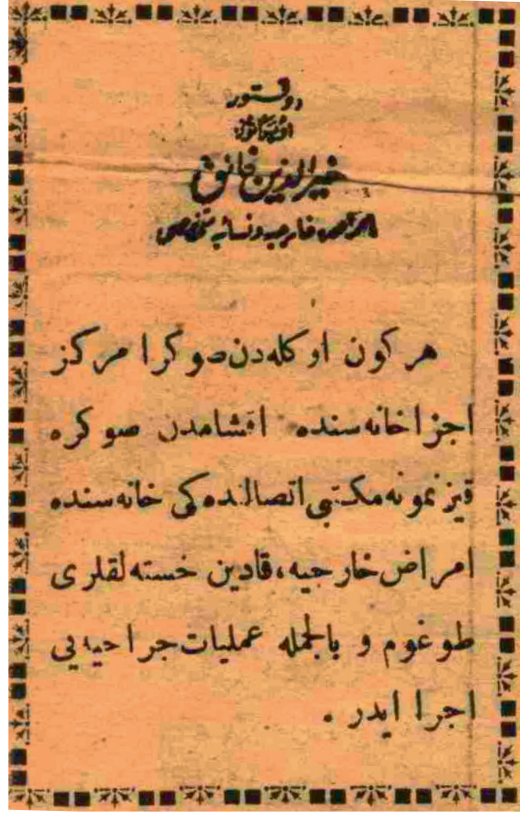 دوقتور
خیرالدین فائق
امراض خارجیه و نسائیه متخصصی
هر کون اوکله‌دن صوکرا مرکز
اجزاخانه‌سنده اقشامدن صوکره
قیز نمونه مکتبی اتصالنده‌کی خانه‌سنده
امراض خارجیه، قادین خسته‌لقلری
طوغوم و بالجمله عملیات جراحیه‌یی
اجرا ایدر .